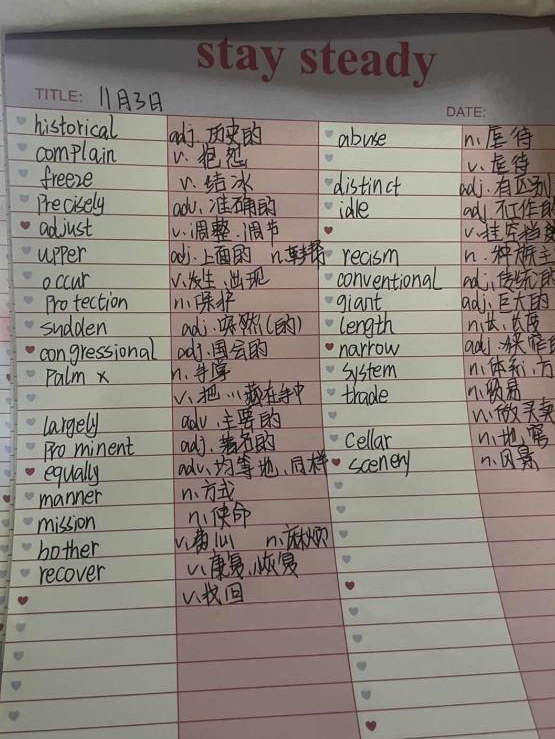 stay steady
TITLE: 11月3日
DATE:
historical adj. 历史的
complain v. 抱怨
freeze v. 结冰
Precisely adv. 准确的
adjust v. 调整. 调节
upper adj. 上面的 n. 鞋帮
occur v. 发生. 出现
Protection n. 保护
sudden adj. 突然(的)
congressional adj. 国会的
Palm x n. 手掌
v. 把…藏在手中
largely adv. 主要的
Prominent adj. 著名的
equally adv. 均等地. 同样
manner n. 方式
mission n. 使命
bother v. 费心 n. 麻烦
recover v. 康复. 恢复
v. 找回
abuse n. 虐待
v. 虐待
distinct adj. 有区别
idle adj. 不工作的
v. 挂空挡
recism n. 种族主
conventional adj. 传统的
giant adj. 巨大的
length n. 长. 长度
narrow adj. 狭窄的
system n. 体系. 方
trade n. 贸易
v. 做买卖
Cellar n. 地窖
scenery n. 风景